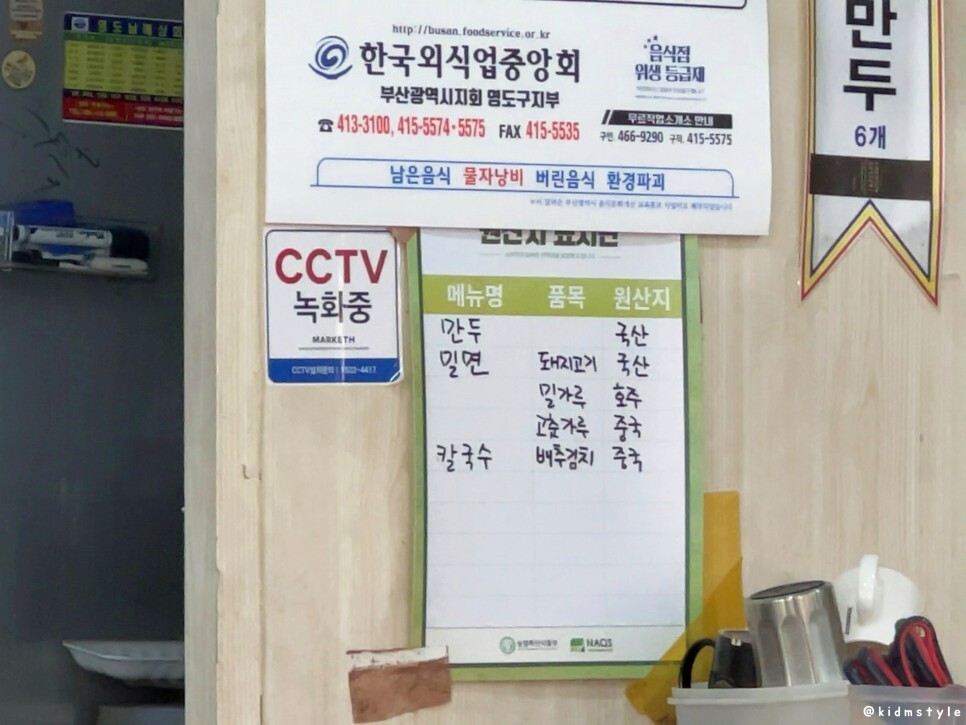 http://busan.foodservice.or.kr
한국외식업중앙회
부산광역시지회 영도구지부
☎ 413-3100, 415-5574·5575 FAX 415-5535
음식점
위생 등급제
무료직업소개소 안내
구인. 466-9290 구직. 415-5575
남은음식 물자낭비 버린음식 환경파괴
만두
6개
CCTV
녹화중
MARKETH
원산지 표시판
메뉴명 품목 원산지
만두 국산
밀면 돼지고기 국산
밀가루 호주
고춧가루 중국
칼국수 배추김치 중국
NAQS
@kidmstyle